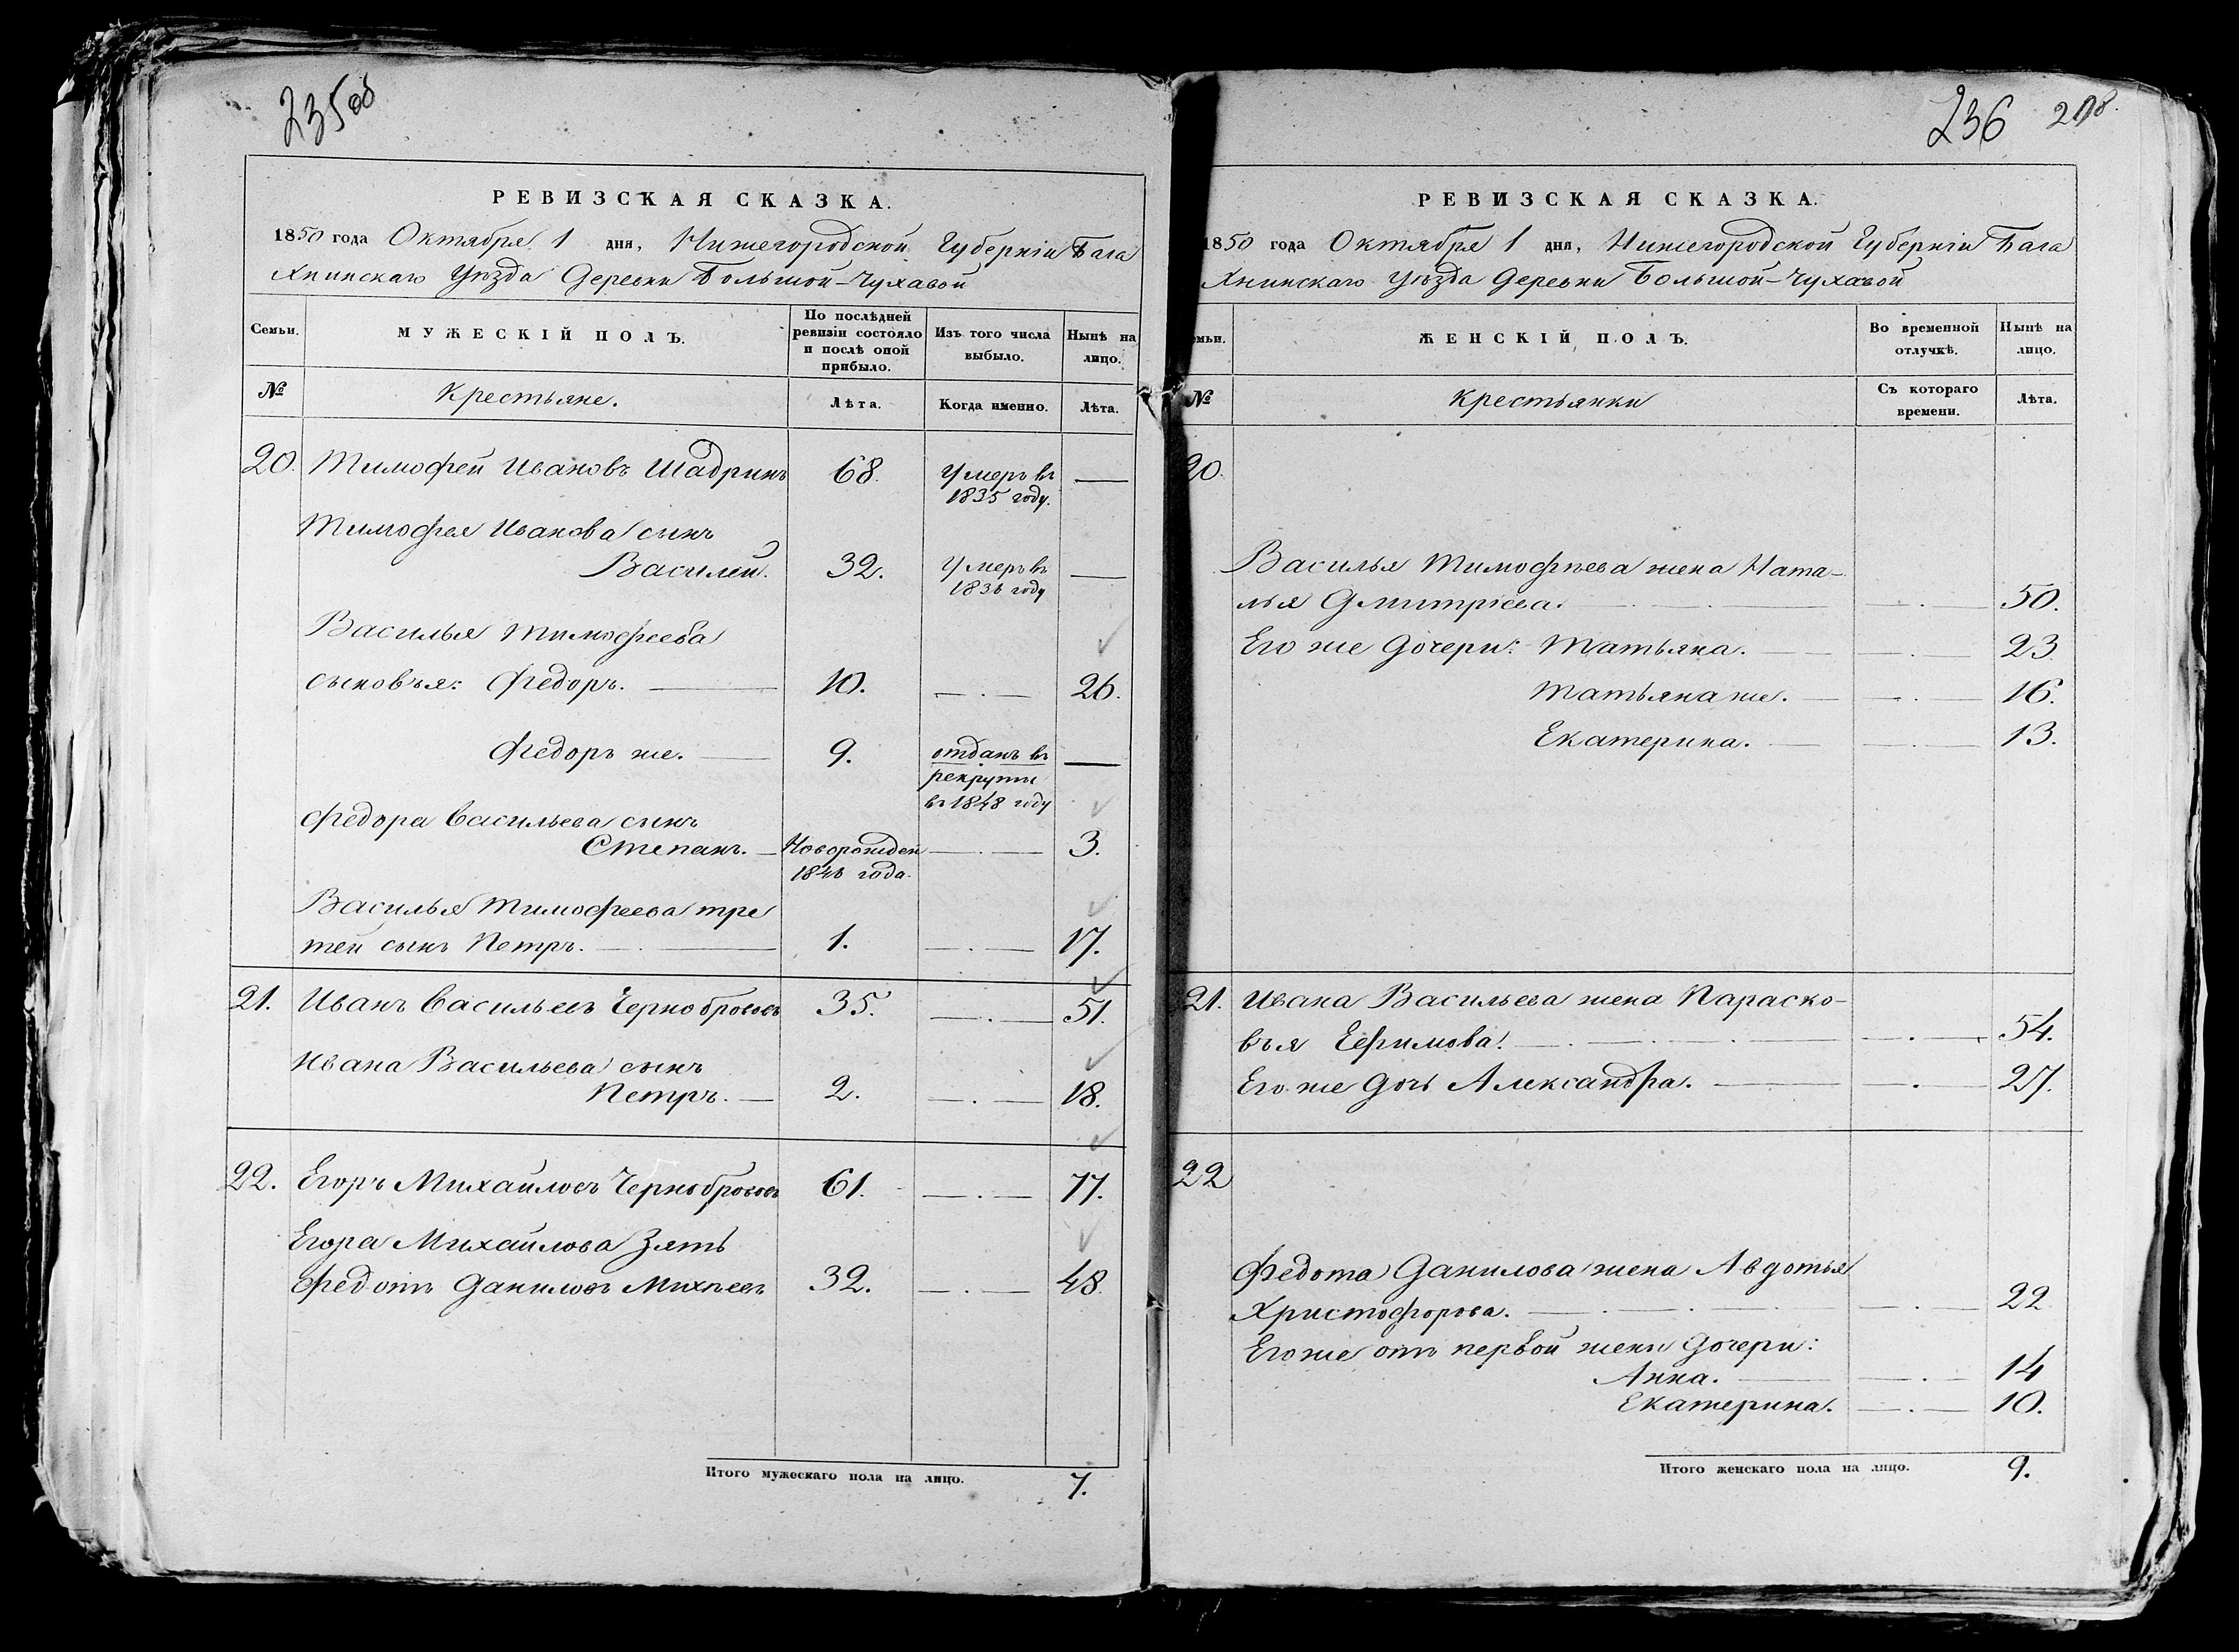 235об
РЕВИЗСКАЯ СКАЗКА.
1850 года Октября 1 дня, Нижегородской Губерніи Бала
Хнинскаго Уѣзда Деревни Большой-Чухавой
Семьи.
МУЖЕСКІЙ ПОЛЪ.
По послѣдней
ревизіи состояло
и послѣ оной
прибыло.
Изъ того числа
выбыло.
Нынѣ на
лицо.
№
Крестьяне.
Лѣта.
Когда именно.
Лѣта.
20. Тимофей Ивановъ Шадринъ 68. Умеръ въ —
1835 году.
Тимофея Иванова сынъ
Василей. 32. Умеръ въ —
1836 году
Василья Тимофеева
сыновья: Федоръ. — 10. — . — 26.
Федоръ же. — 9. отданъ въ —
рекруты
въ 1848 году
Федора Васильева сынъ
Степанъ. — Новорожден — . — 3.
1846 года.
Василья Тимофеева тре
тей сынъ Петръ. — . — 1. — . — 17.
21. Иванъ Васильевъ Чернобрововъ 35. — . — 51.
Ивана Васильева сынъ
Петръ. — 2. — . — 18.
22. Егоръ Михайловъ Чернобрововъ 61. — . — 77.
Егора Михайлова Зять
Федотъ Даниловъ Михѣевъ 32. — . — 48.
Итого мужескаго пола на лицо. 7.
236
РЕВИЗСКАЯ СКАЗКА.
1850 года Октября 1 дня, Нижегородской Губерніи Бала
Хнинскаго Уѣзда Деревни Большой-Чухавой
емьи.
ЖЕНСКІЙ ПОЛЪ.
Во временной
отлучкѣ.
Нынѣ на
лицо.
№
Крестьянки
Съ котораго
времени.
Лѣта.
20.
Василья Тимофѣева жена Ната-
лья Дмитріева. — . — 50.
Его же Дочери: Татьяна. — — . — 23
Татьяна же. — — . — 16.
Екатерина. — — . — 13.
21. Ивана Васильева жена Параско-
вья Ефимова. — . — 54.
Его же Дочь Александра. — — . — 27.
22
Федота Данилова жена Авдотья
Христофорова. — . — 22
Его же отъ первой жены Дочери:
Анна. — — . — 14
Екатерина. — . — 10.
Итого женскаго пола на лицо. 9.